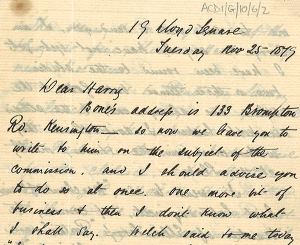 ACD1/G/10/6/2
19 Lloyd Square
Tuesday Nov 25 - 1879
Dear Harry
Bone's address is 133 Brompton
Ro. Kensington — so now we leave you to
write to him on the subject of the
commission. and I should advise you
to do so at once. one more bit of
business & then I don't know what
I shall say. Welch said to me today